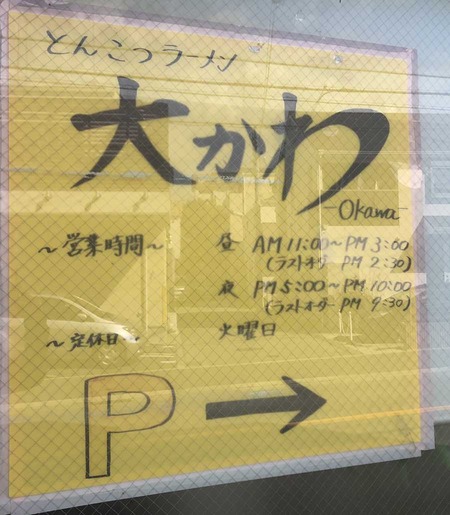 とんこつラーメン
大かわ
-Okawa-
～営業時間～ 昼 AM 11:00～PM 3:00
(ラストオーダー PM 2:30)
夜 PM 5:00～PM 10:00
(ラストオーダー PM 9:30)
～定休日～ 火曜日
P →